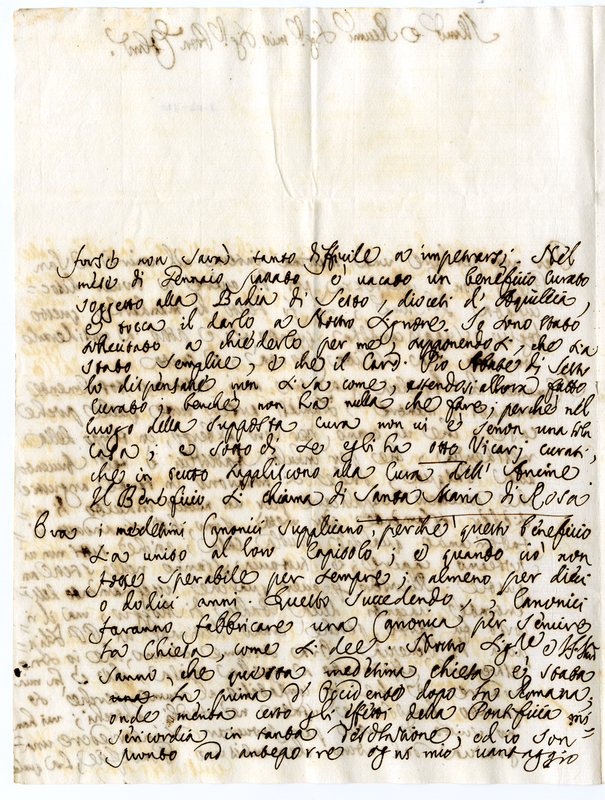 forse non sarà tanto difficile a impetrarsi. Nel
mese di Gennaio passato è vacato un beneficio curato
soggetto alla Badia di Sesto, diocesi d'Aquileia,
e tocca il darlo a Nostro Signore. Io sono stato
a chiederlo per me, supponendosi, che sia
stato semplice, e che il Card. Pio Abate di Sesto
lo dispensasse non si sa come, essendosi allora fatto
curato; benche non ha nulla che fare, perche nel
luogo della supposta cura non vi è senon una sola
casa; e sotto di se egli ha otto Vicarj curati,
che in tutto suppliscono alla Cura dell'Anime.
Il Beneficio si chiama di Santa Maria di Rosa
Ora i medesimi Canonici supplicano, perche questo beneficio
sia unito al loro Capitolo; e quando ciò non
fosse sperabile per sempre, almeno per dieci
o dodici anni. Questo succedendo, i Canonici
faranno fabbricare una Canonica per servire
la Chiesa, come si dee. Nostro Sig.re e
sanno, che questa medesima chiesa è stata
la prima d'Occidente dopo la Romana,
onde merita certo gli effetti della Pontificia mi=
sericordia in tanta desolazione; ed io son
pronto ad anteporre ogni mio vantaggio